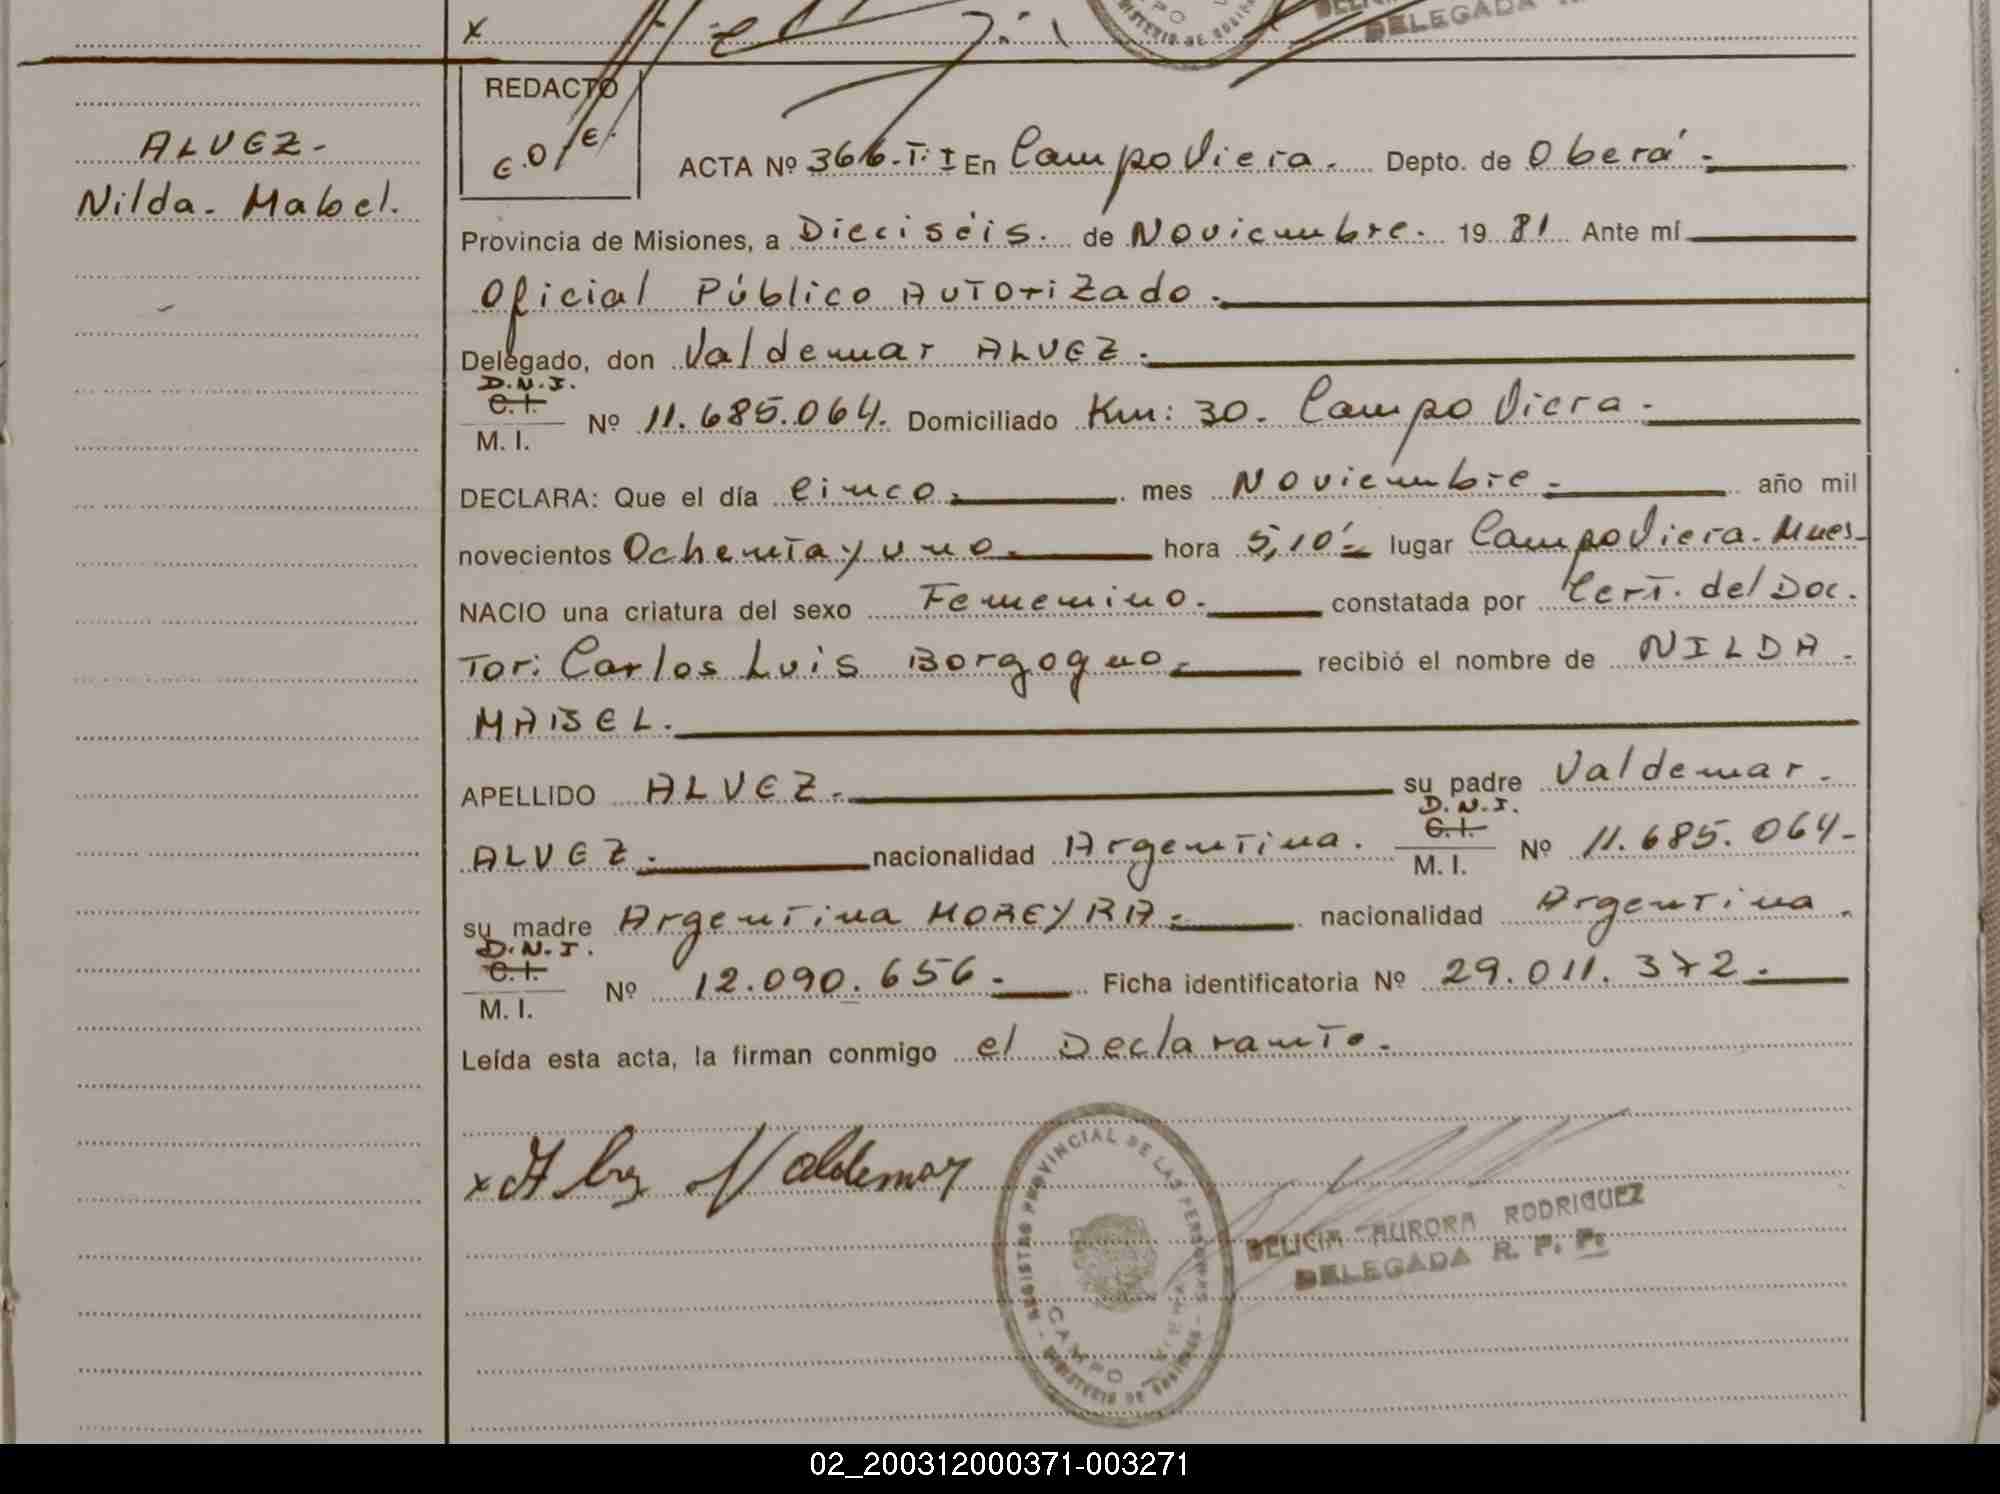 x
DELEGADA
REDACTO
ALVEZ.-
Nilda. Mabel.
ACTA Nº 366.T:I En Campo Viera. Depto. de Oberá.-
Provincia de Misiones, a Dieciséis. de Noviembre. 19 81 Ante mí
Oficial Público Autorizado.
Delegado, don Valdemar ALVEZ.
D.N.I.
C.I.
M. I. Nº 11.685.064. Domiciliado Km: 30. Campo Viera.
DECLARA: Que el día Cinco. mes Noviembre. año mil
novecientos Ochenta y uno. hora 5,10' lugar Campo Viera. Mnes-
NACIO una criatura del sexo Femenino. constatada por Cert. del Doc.
Tor: Carlos Luis Borgogno. recibió el nombre de NILDA.
MABEL.
APELLIDO ALVEZ. su padre Valdemar.
ALVEZ. nacionalidad Argentina. D.N.I. C.I. M. I. Nº 11.685.064-
su madre Argentina MOREYRA. nacionalidad Argentina.
D.N.I.
C.I.
M. I. Nº 12.090.656. Ficha identificatoria Nº 29.011.372.
Leída esta acta, la firman conmigo el Declarante.
x Alvez Valdemar
REGISTRO PROVINCIAL DE LAS PERSONAS - MINISTERIO DE GOBIERNO -
CAMPO VIERA
DELICIA AURORA RODRIGUEZ
DELEGADA R. P. P.
02_200312000371-003271